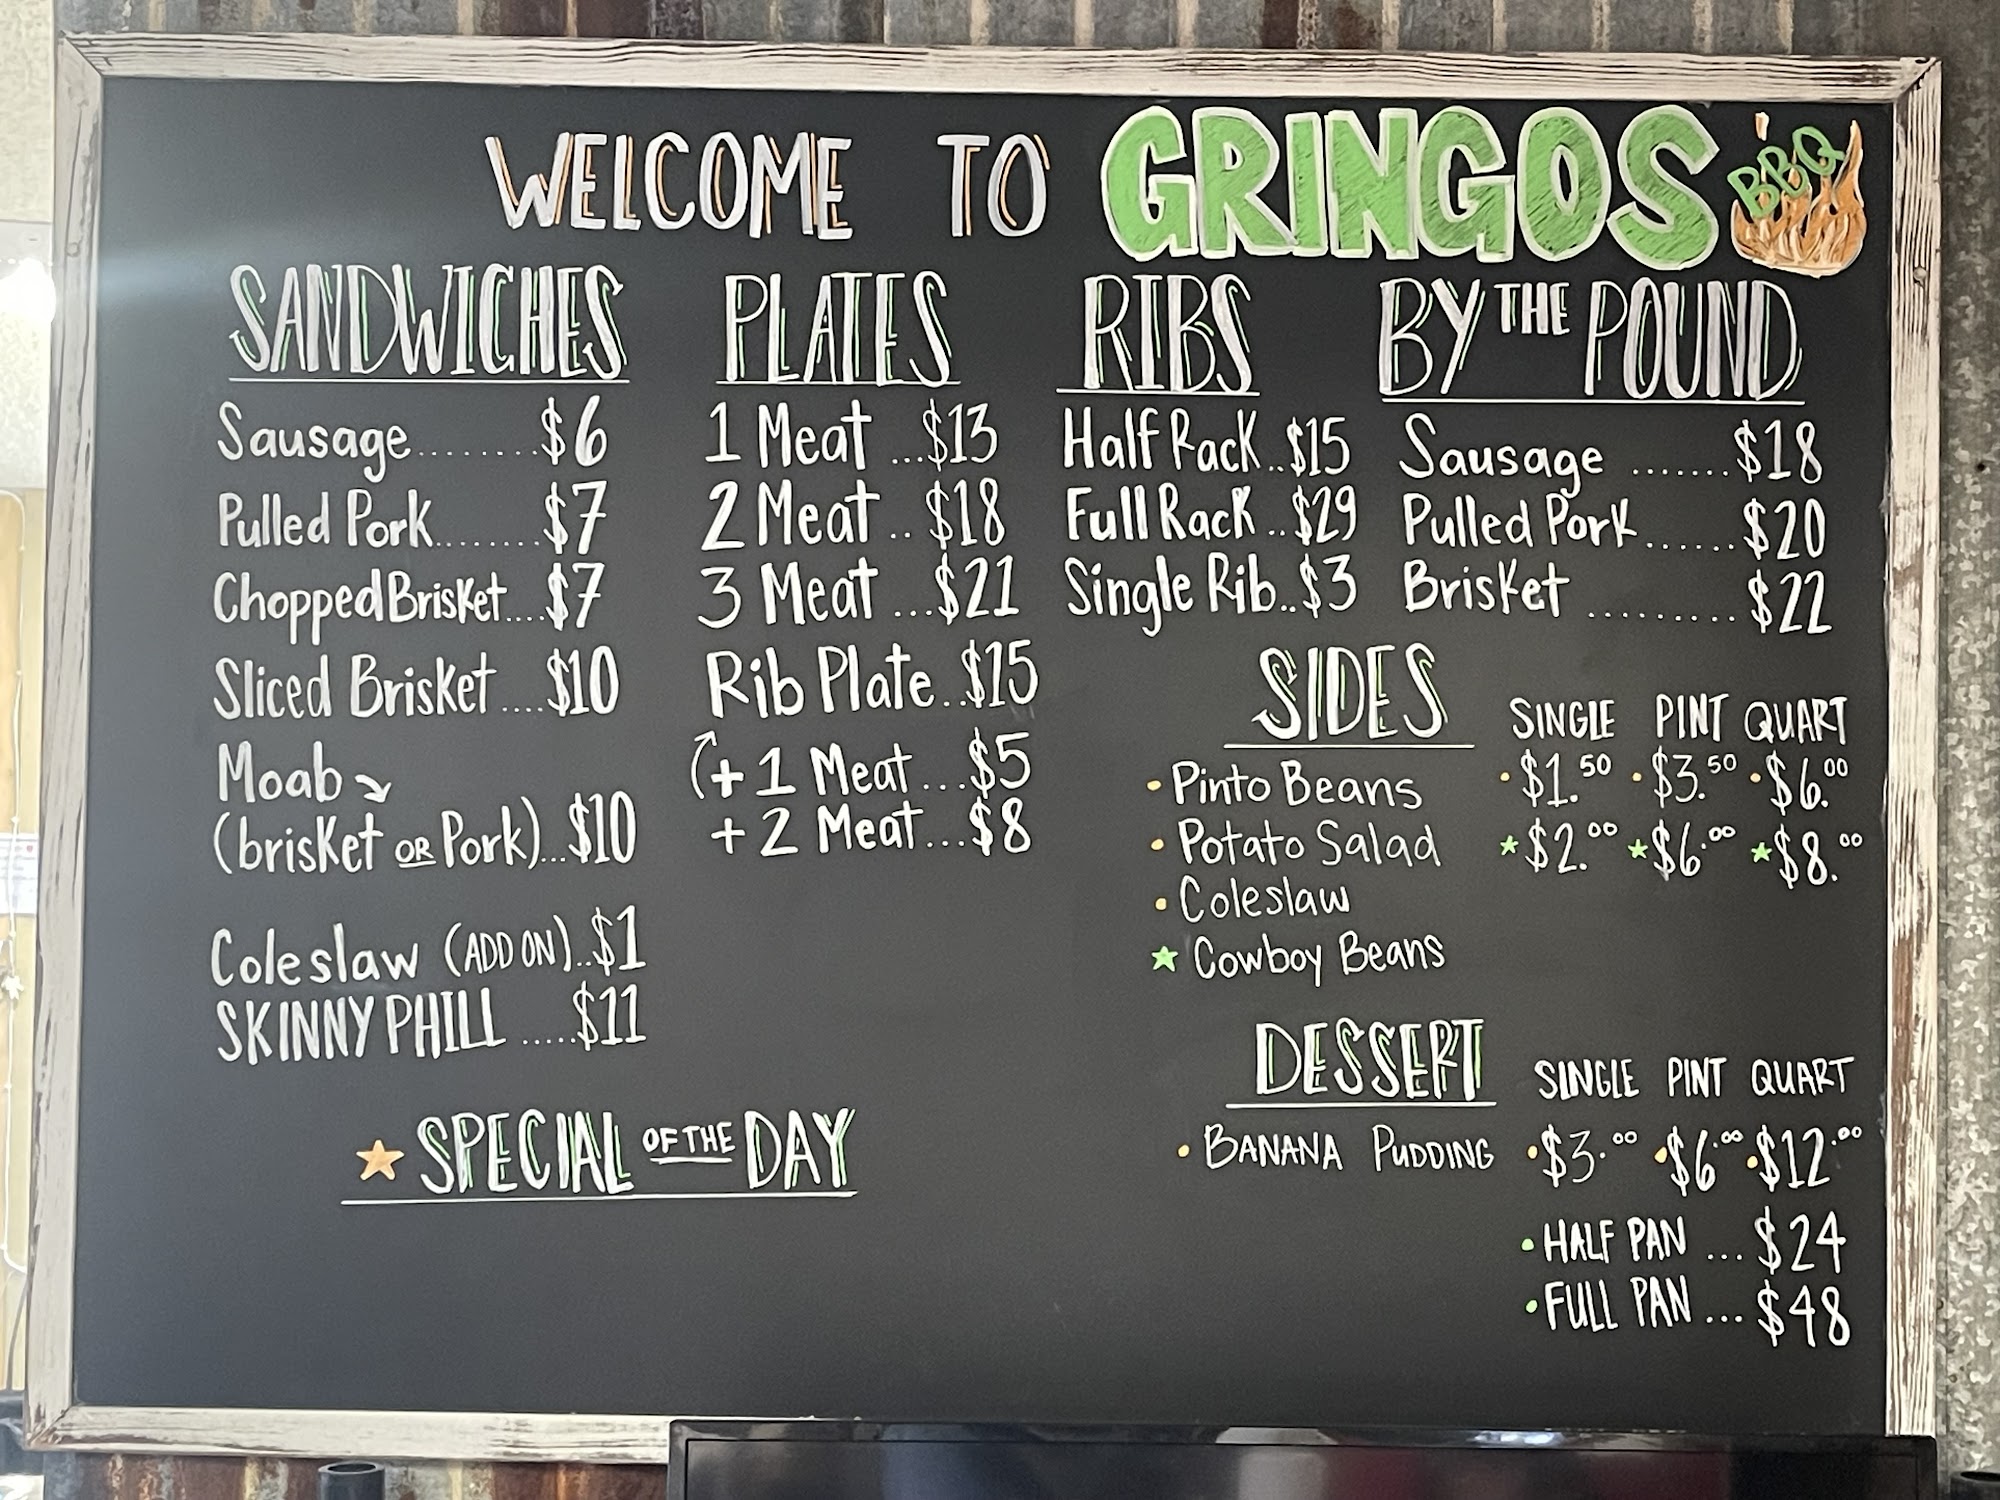 WELCOME TO GRINGOS BBQ
SANDWICHES
Sausage........$6
Pulled Pork........$7
Chopped Brisket....$7
Sliced Brisket....$10
Moab
(brisket OR Pork)...$10
Coleslaw (ADD ON)..$1
SKINNY PHILL .....$11
PLATES
1 Meat ...$13
2 Meat ..$18
3 Meat ...$21
Rib Plate..$15
(+ 1 Meat...$5
+ 2 Meat...$8
RIBS
Half Rack..$15
Full Rack..$29
Single Rib..$3
BY THE POUND
Sausage .......$18
Pulled Pork......$20
Brisket .........$22
SIDES
SINGLE PINT QUART
• Pinto Beans • $1.50 • $3.50 • $6.00
• Potato Salad ★ $2.00 ★ $6.00 ★ $8.00
• Coleslaw
★ Cowboy Beans
DESSERT
SINGLE PINT QUART
• BANANA PUDDING • $3.00 • $6.00 • $12.00
• HALF PAN ... $24
• FULL PAN ... $48
★ SPECIAL OF THE DAY